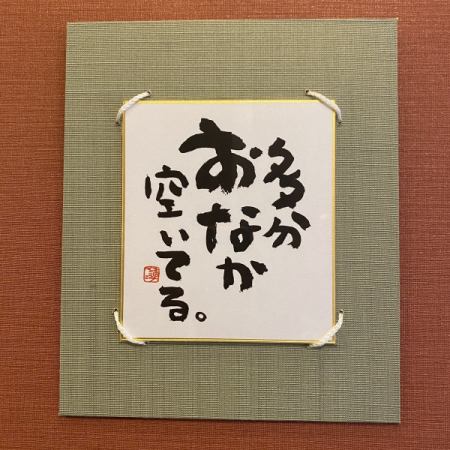 多分
おなが
空いてる。